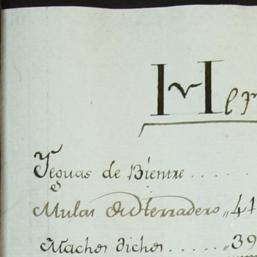 Yeguas de Bientre ......
Mulas de Herradero ,, 41
Machos dichos ...... ,, 39